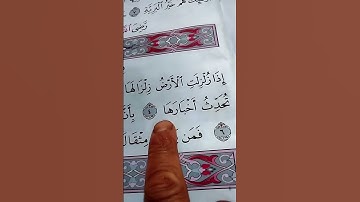 خَيْرُ ٱلْبَرِيَّةِ ٧
رَّضِىَ
إِذَا زُلْزِلَتِ ٱلْأَرْضُ زِلْزَالَهَا
تُحَدِّثُ أَخْبَارَهَا ٤
٦ فَمَن